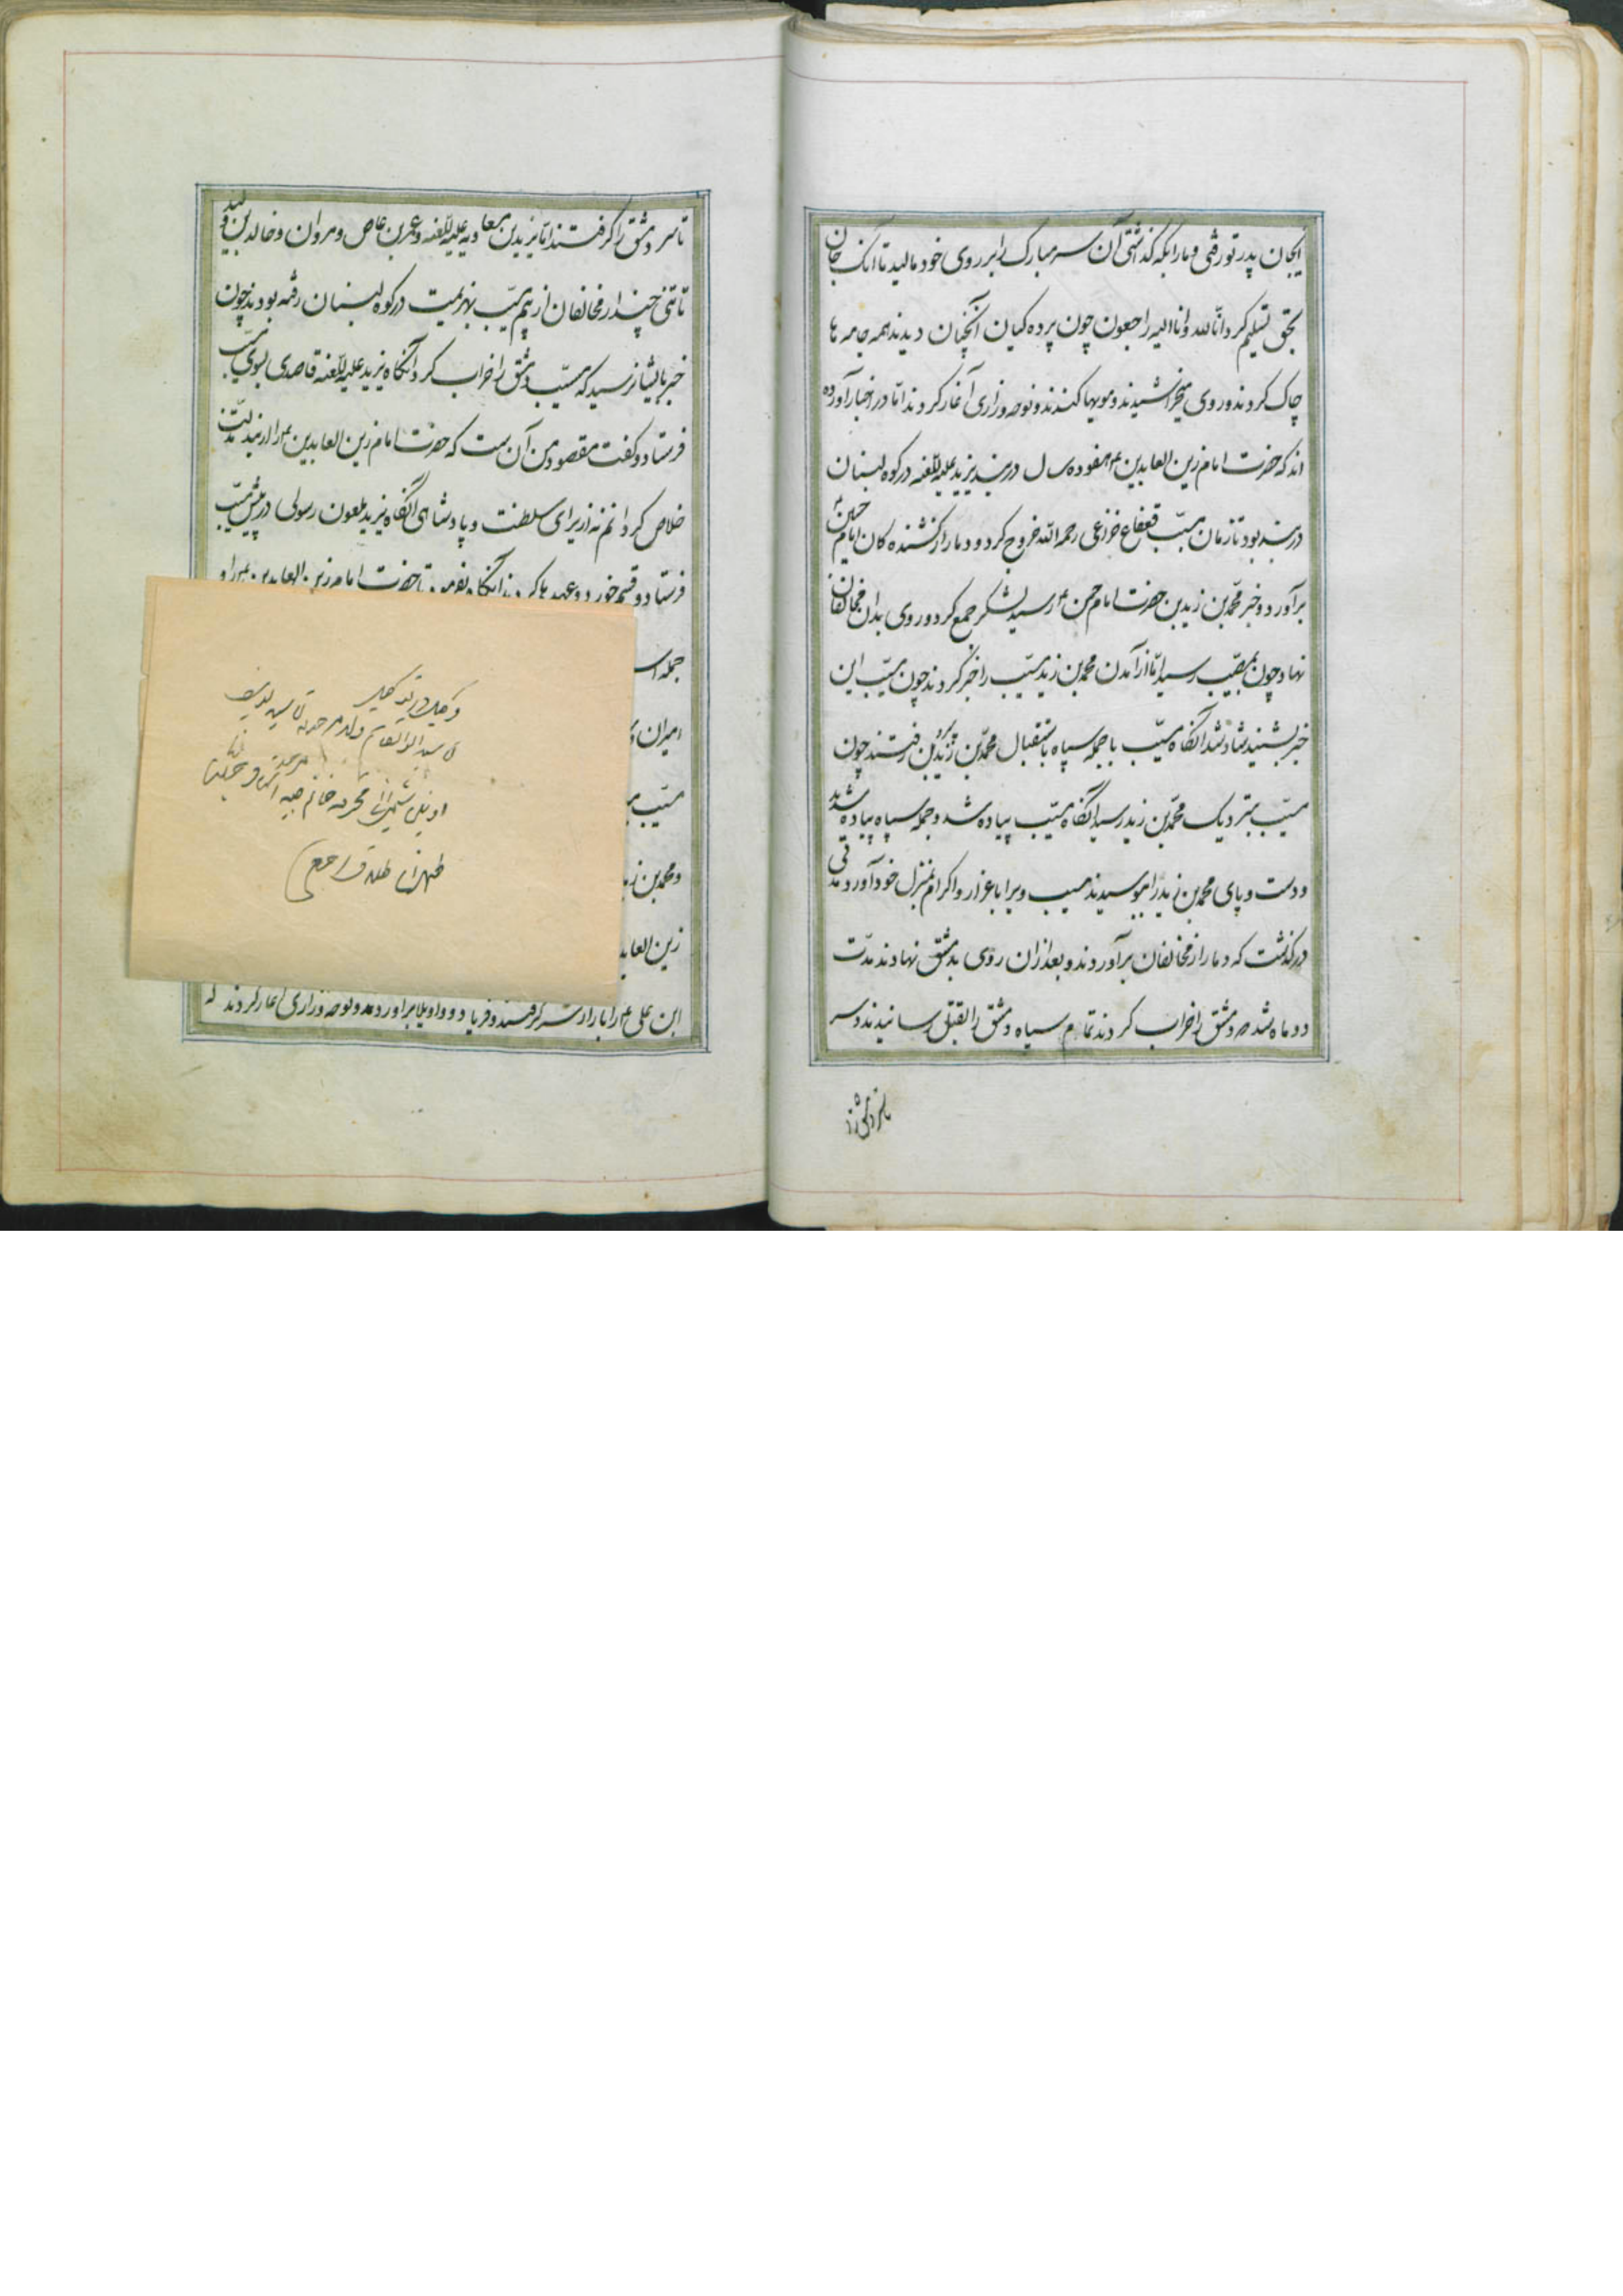 ایجان پدر تو رفتی و مارا بکه کذاشتی آن سر مبارک را بر روی خود مالید تا آنک جان
بحق تسلیم کرد انّا لله و انا الیه راجعون چون پرده کیان آنچنان دیدند همه جامه ها
چاک کردند و روی میخراشیدند و مویها کندند و نوحه و زاری آغاز کردند امّا در اخبار آورده
اند که حضرت امام زین العابدین ع هفده سال در بند یزید علیه اللعنه در کوه لبنان
در بند بود تا زمان مسیّب قعقاع خزاعی رحمه الله خروج کرد و دمار از کشنده کان امام حسین ع
برآورد و خبر محمّد بن زید بن حضرت امام حسن ع رسید لشکر جمع کرد و روی بدان مخالفان
نهاد چون بمسیّب رسید امّا از آمدن محمد بن زید مسیّب را خبر کردند چون مسیّب این
خبر بشنید شاد شد آنکاه مسیّب با جمله سپاه باستقبال محمّد بن زید بن رفتند چون
مسیّب بنزدیک محمّد بن زید رسید آنکاه مسیّب پیاده شد و جمله سپاه پیاده شدید
و دست و پای محمد بن زید را ببوسیدند مسیب ویرا با عزاز و اکرام بمنزل خود آورد و مدتی
درکذشت که دمار از مخالفان برآوردند و بعد از ان روی بدمشق نهادند مدّت
دو ماه شد که دمشق را خراب کردند تمام سپاه دمشق را بقتل رسانیدند و سر
تا سر دمشق را کرفتند امّا یزید بن معاویه علیه اللعنه و عمر بن عاص و مروان و خالد بن ولید
تا تنی چند از مخالفان از بیم مسیّب بهزیمت در کوه لبنان رفته بودند چون
خبر بایشان رسید که مسیّب دمشق را خراب کرد آنکاه یزید علیه اللعنه قاصدی بسوی مسیّب
فرستاد و کفت مقصود من آن ست که حضرت امام زین العابدین ع را از بند
خلاص کردانم نه از برای سلطنت و پادشاهی آنکاه یزید ملعون رسولی در پیش مسیّب
فرستاد و قسم خورد و عهدها کردند آنکاه بفرمود تا حضرت امام زین العابدین ع را و
جمله
امیران
مسیّب
و محمد بن
زین العابد
ابن علی ع را بار از سر کرفتند و فریاد و واویلا برآوردند و نوحه و زاری آغاز کردند که
سید ابوالقاسم ولد مرحوم
محترمه خانم
طهران